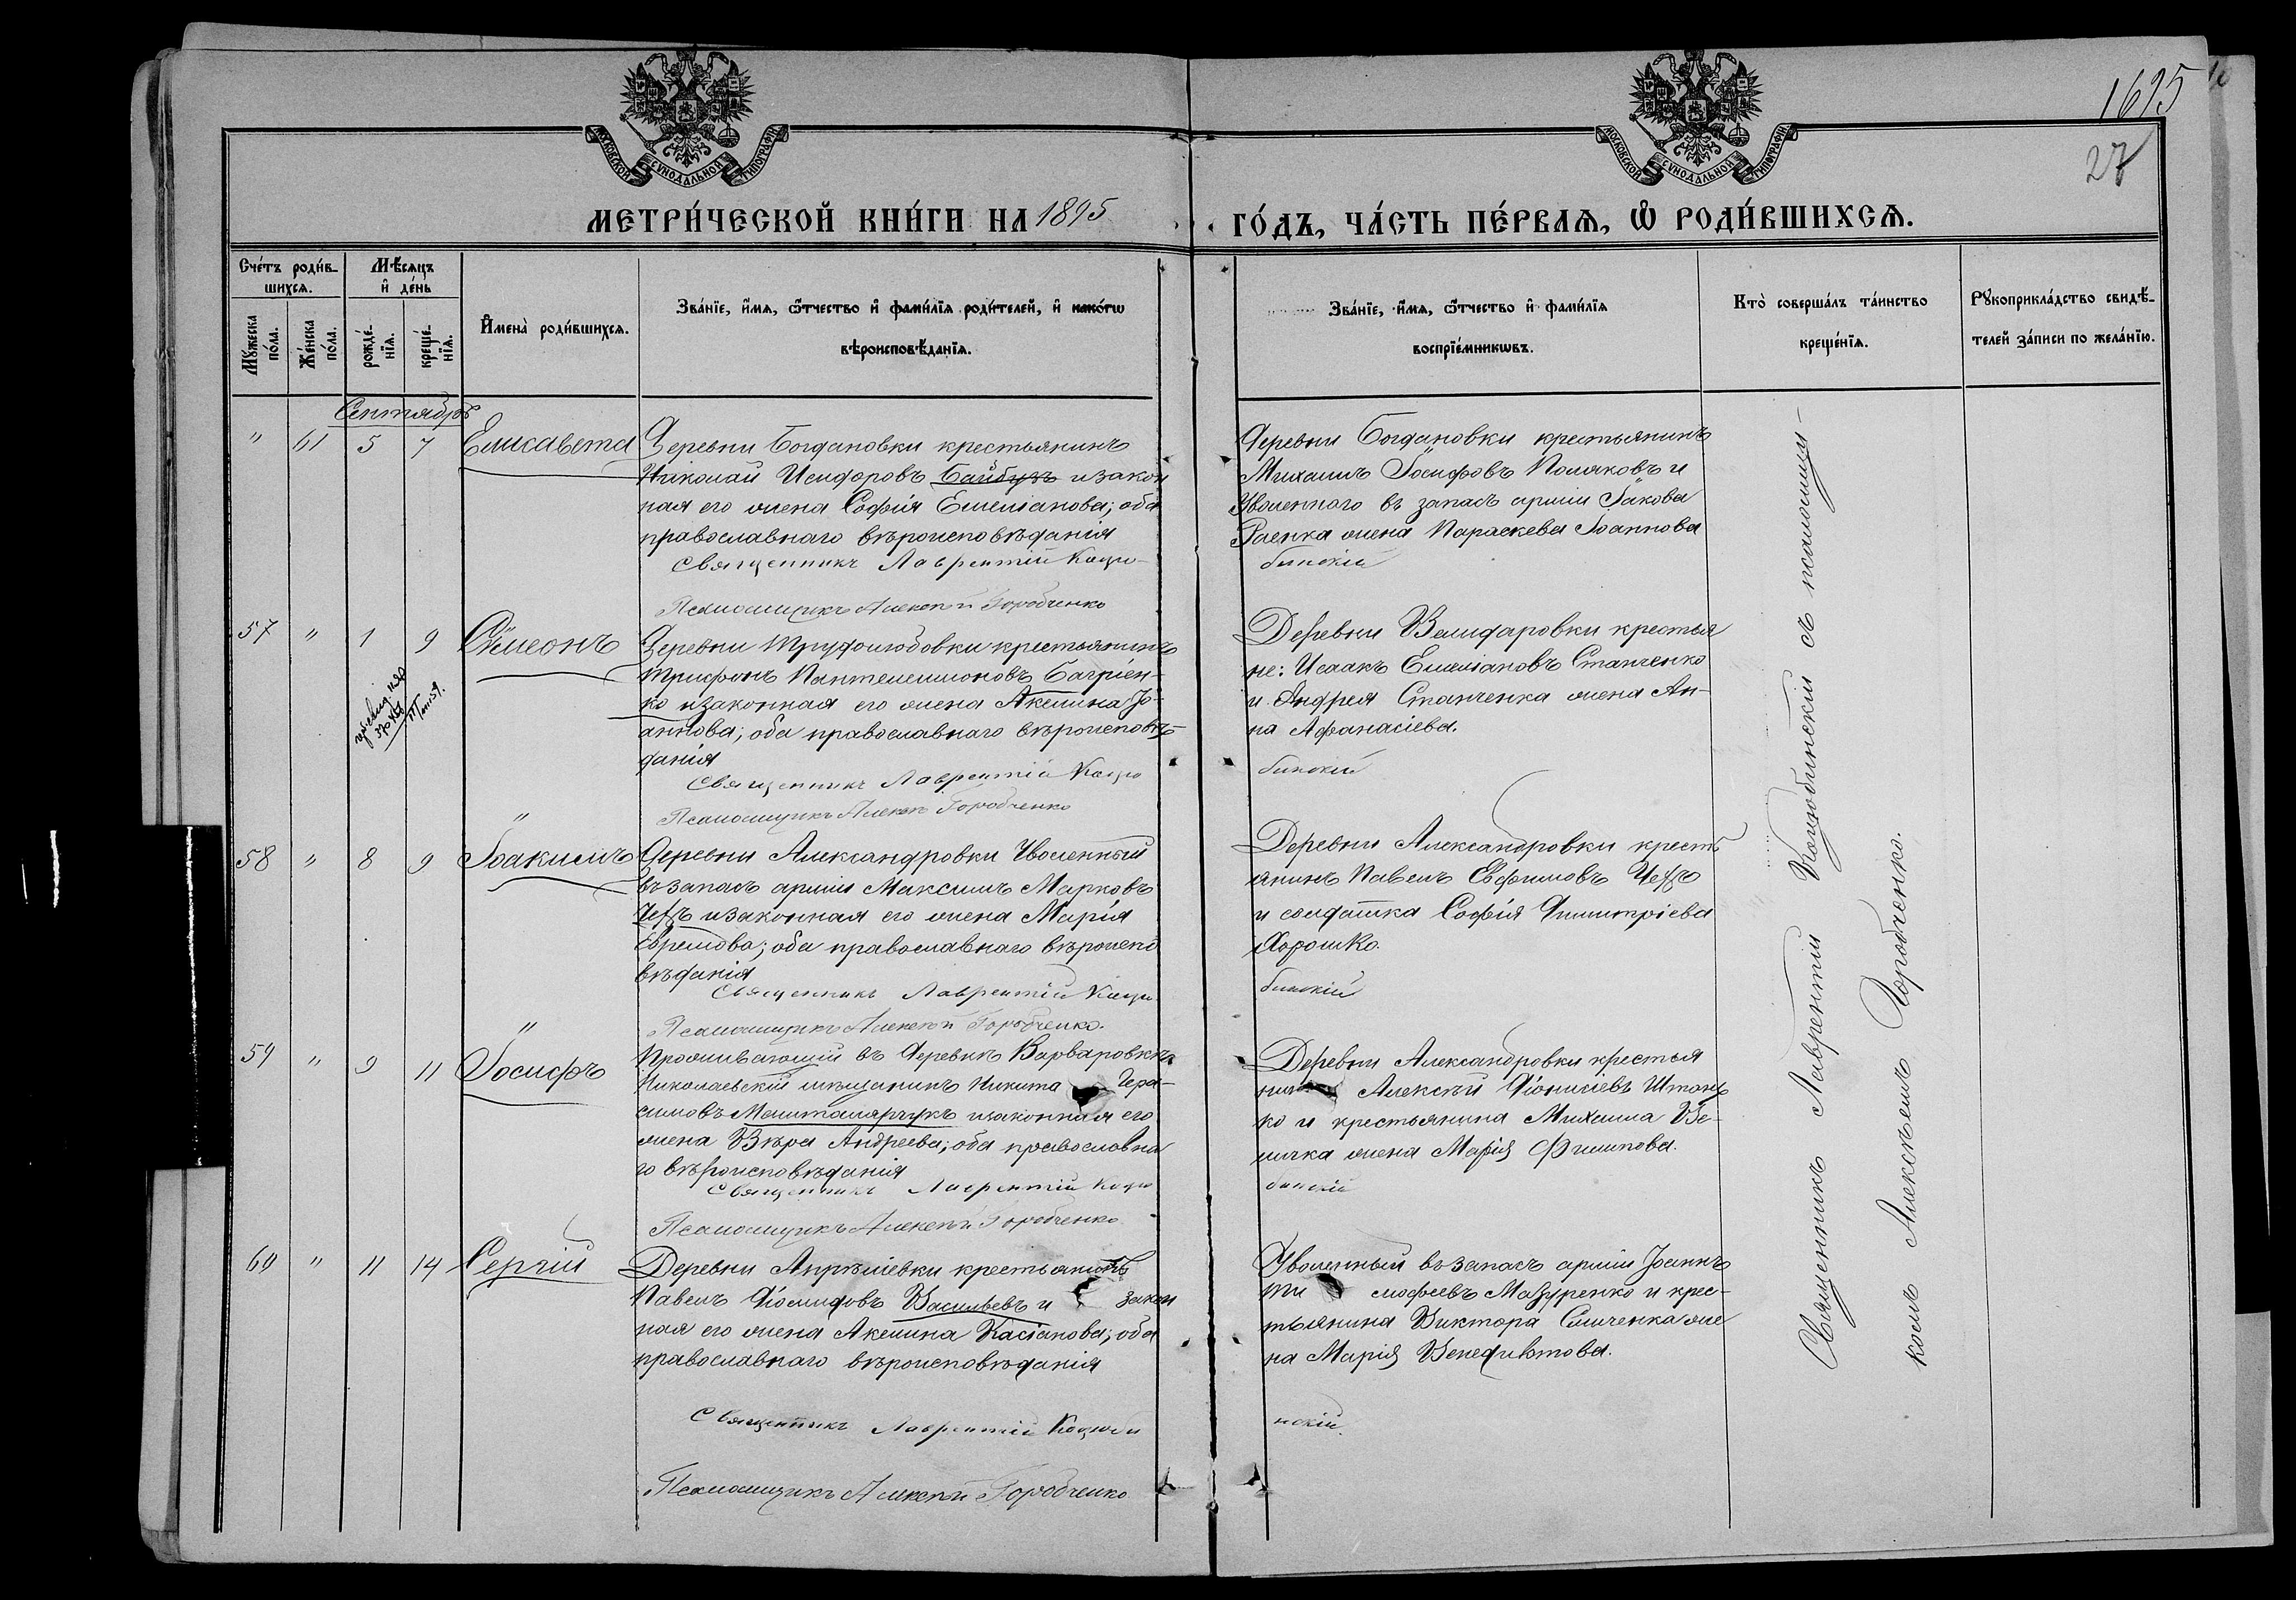 1695
27
МОСКОВСКОЙ СѴНОДАЛЬНОЙ ТИПОГРАФІИ
МОСКОВСКОЙ СѴНОДАЛЬНОЙ ТИПОГРАФІИ
МЕТРИ́ЧЕСКОЙ КНИ́ГИ НА 1895 ГО́ДЪ, ЧА́СТЬ ПЕ́РВАѦ, Ѽ РОДИ́ВШИХСѦ.
Счетъ роди́в-
шихсѧ.
Мꙋ́жеска по́ла.
Же́нска по́ла.
Мѣ́сѧцъ
и҆ де́нь
рожде́-
нїѧ.
креще́-
нїѧ.
И҆мена̀ роди́вшихсѧ.
Зва́нїе, и҆́мѧ, ѻ҆́тчество и҆ фами́лїѧ роди́телей, и҆ како́гѡ
вѣроисповѣ́данїѧ.
Зва́нїе, и҆́мѧ, ѻ҆́тчество и҆ фами́лїѧ
воспрїе́мникѡвъ.
Кто̀ соверша́лъ та́инство
креще́нїѧ.
Рꙋкоприкла́дство свидѣ́-
телей за́писи по жела́нїю.
Сентябрь
" 61 5 7 Елисавета
Деревни Богдановки крестьянинъ
Николай Исидоровъ Байбузъ и закон
ная его жена Софія Емеліанова; оба
православнаго вѣроисповѣданія
Священникъ Лаврентій Коцю-
Псаломщикъ Алексѣй Горобченко
Деревни Богдановки крестьянинъ
Михаилъ Іосифовъ Поляковъ и
Уволеннаго въ запасъ арміи Іакова
Раенка жена Параскева Іоаннова
бинскій
57 " 1 9 Сѵмеонъ
Деревни Трифонгодовки крестьянинъ
Трифонъ Пантелеимоновъ Багріен-
ко и законная его жена Акелина Іо-
аннова; оба православнаго вѣроисповѣ-
данія
Священникъ Лаврентій Коцю
Псаломщикъ Алексѣй Горобченко
Деревни Велидаровки крестья
не: Исаакъ Емеліановъ Стапченко
и Андрея Стапченка жена Ан-
на Афанасіева.
бинскій
58 " 8 9 Іоакимъ
Деревни Александровки Уволенный
въ запасъ арміи Максимъ Марковъ
Чехъ и законная его жена Марія
Ефремова; оба православнаго вѣроиспо
вѣданія
Священникъ Лаврентій Коцю
Псаломщикъ Алексѣй Горобченко.
Деревни Александровки кресть
янинъ Павелъ Евфимовъ Чехъ
и солдатка Софія Димитріева
Хорошко.
бинскій
59 " 9 11 Іосифъ
Проживающій въ деревнѣ Варваровкѣ
Николаевскій мѣщанинъ Никита Гера-
симовъ Машталярчукъ и законная его
жена Вѣра Андреева; оба православна
го вѣроисповѣданія
Священникъ Лаврентій Коцю
Псаломщикъ Алексѣй Горобченко
Деревни Александровки крестья
нинъ Алексѣй Діонисіевъ Штонд
ко и крестьянина Михаила Ве-
лична жена Марія Филипова.
бинскій
60 " 11 14 Сергій
Деревни Апрѣліевки крестьянинъ
Павелъ Діомидовъ Васильевъ и закон
ная его жена Акелина Касіанова; оба
православнаго вѣроисповѣданія
Священникъ Лаврентій Коцюби
Псаломщикъ Алексѣй Горобченко
Уволенный въ запасъ арміи Іоаннъ
Ти мофеевъ Мазуренко и крес-
тьянина Виктора Симченка же
на Марія Венедиктова.
нскій.
Священникъ Лаврентій Коцюбинскій съ псаломщи-
комъ Алексѣемъ Горобченко.